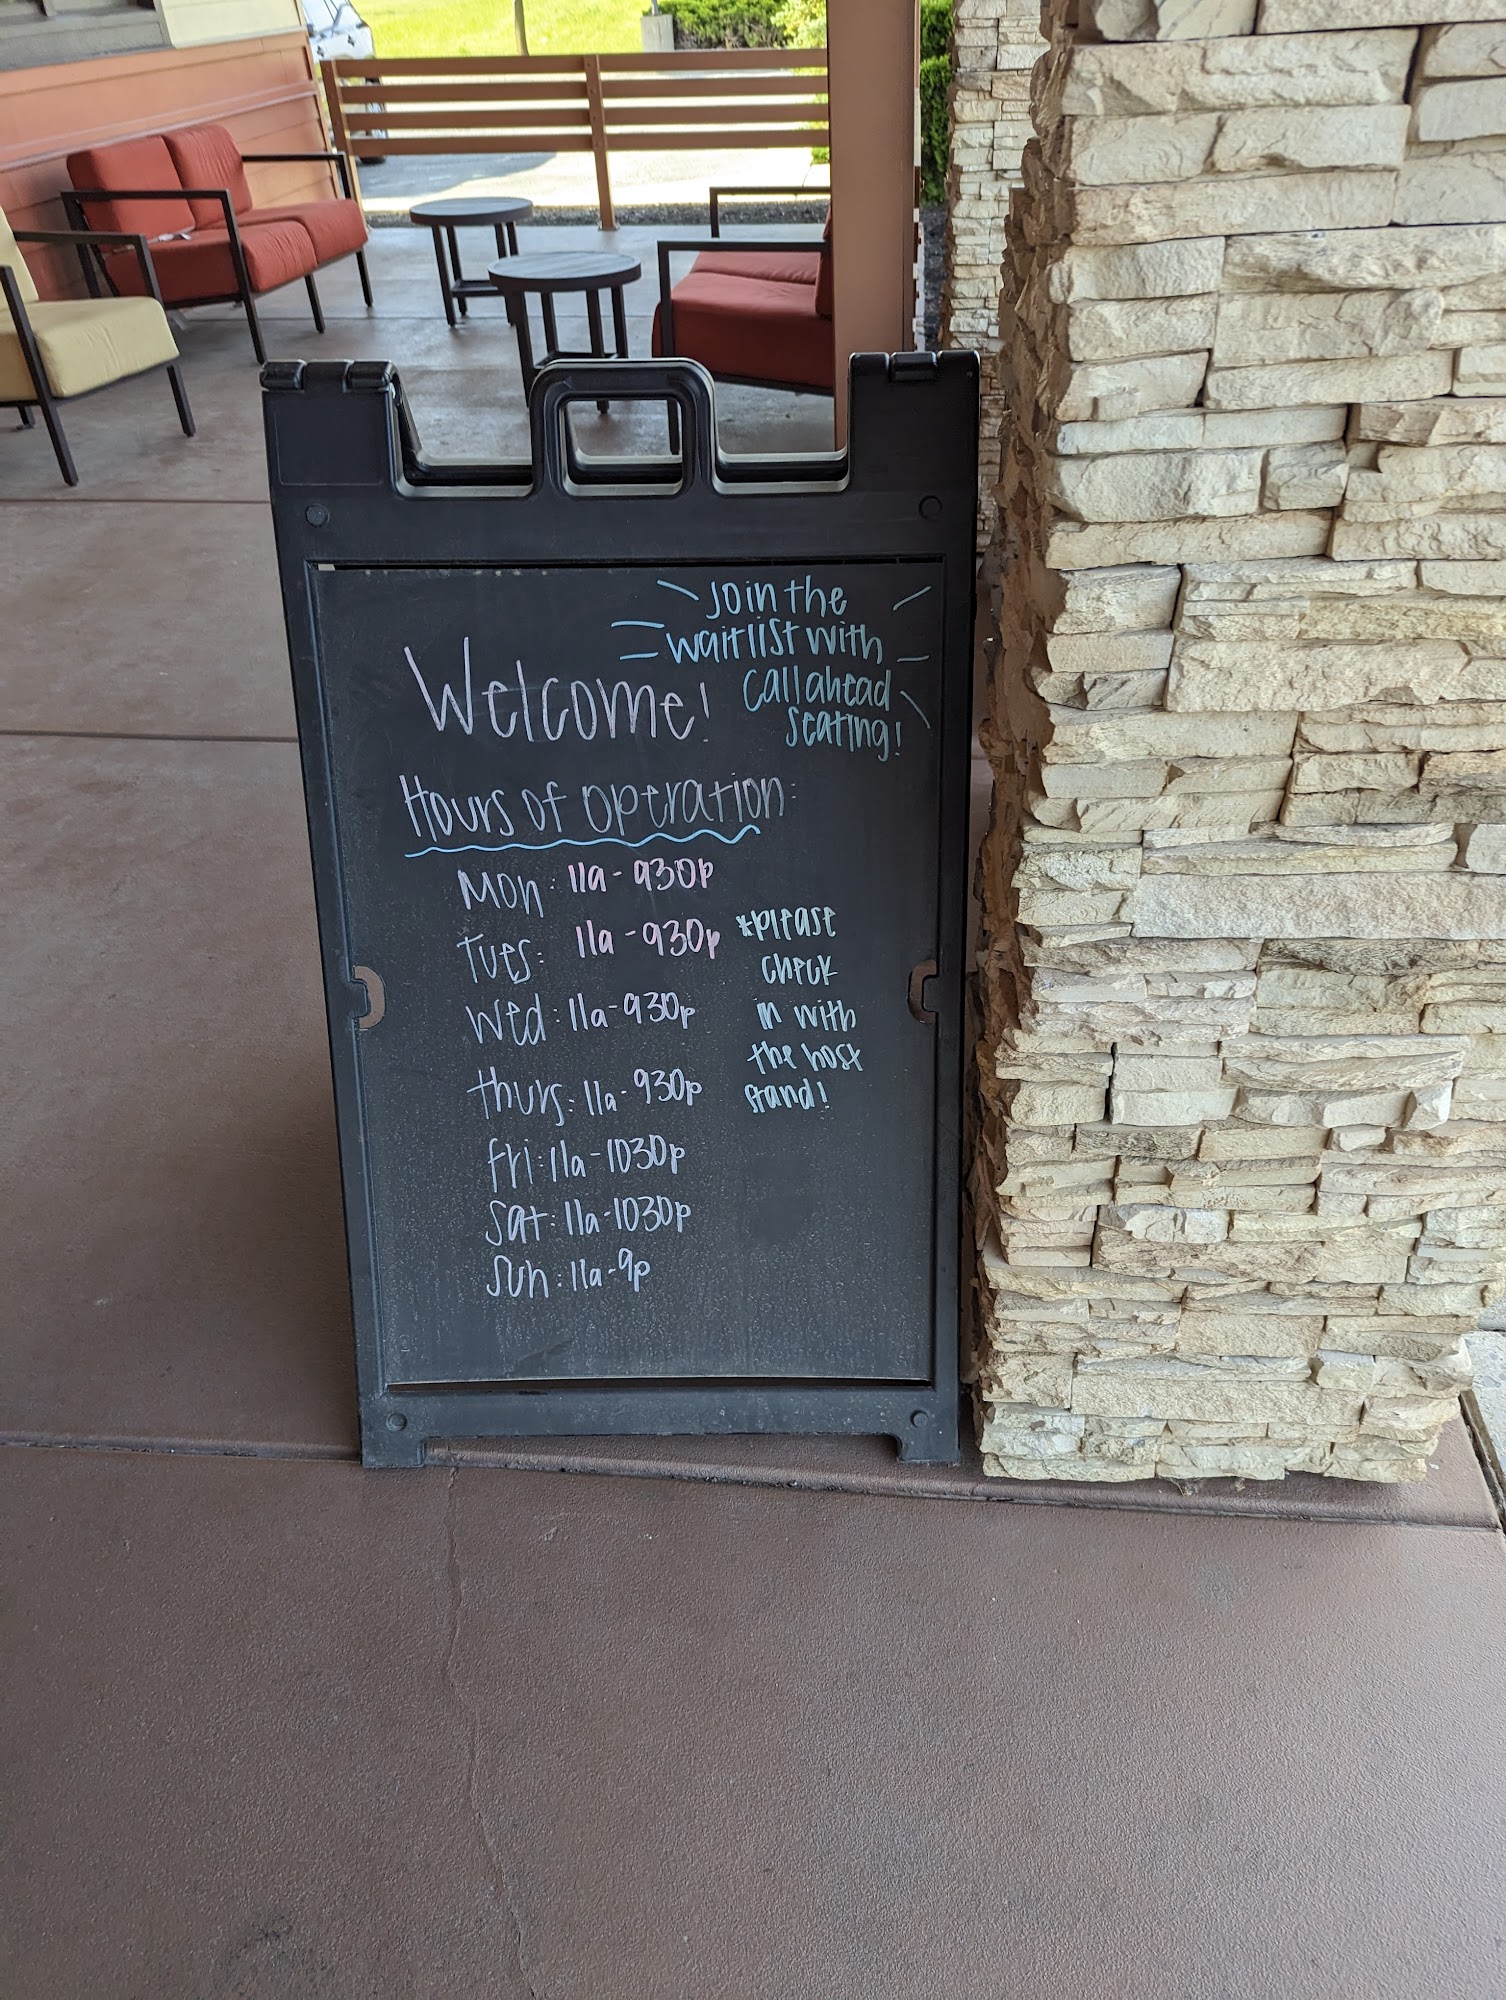 Join the
waitlist with
call ahead
seating!
Welcome!
Hours of operation:
Mon: 11a-930p
Tues: 11a-930p
Wed: 11a-930p
Thurs: 11a-930p
Fri: 11a-1030p
Sat: 11a-1030p
Sun: 11a-9p
*please
check
in with
the host
stand!